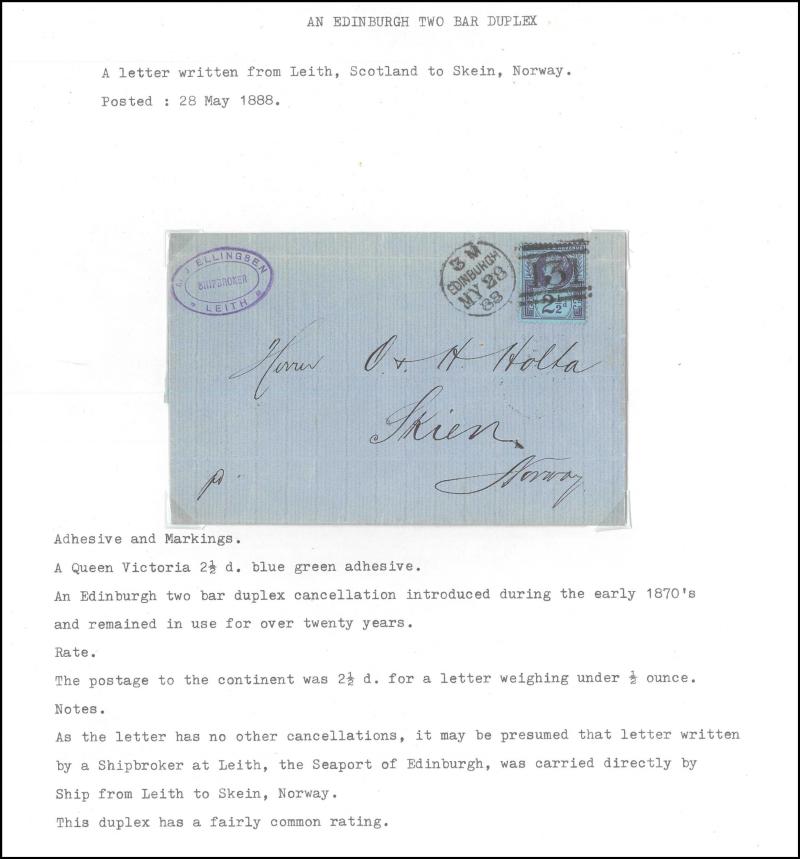 AN EDINBURGH TWO BAR DUPLEX
A letter written from Leith, Scotland to Skein, Norway.
Posted : 28 May 1888.
A. J ELLINGSEN
SHIPBROKER
LEITH
3 M
EDINBURGH
MY 28
88
131
2½d
Herrer O. & H. Holta
Skien
Norway
pr
Adhesive and Markings.
A Queen Victoria 2½ d. blue green adhesive.
An Edinburgh two bar duplex cancellation introduced during the early 1870's
and remained in use for over twenty years.
Rate.
The postage to the continent was 2½ d. for a letter weighing under ½ ounce.
Notes.
As the letter has no other cancellations, it may be presumed that letter written
by a Shipbroker at Leith, the Seaport of Edinburgh, was carried directly by
Ship from Leith to Skein, Norway.
This duplex has a fairly common rating.